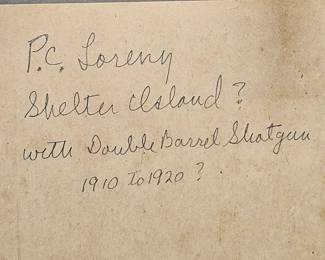 P.C. Loreny
Shelter Island?
with Double Barrel Shotgun
1910 To 1920?.